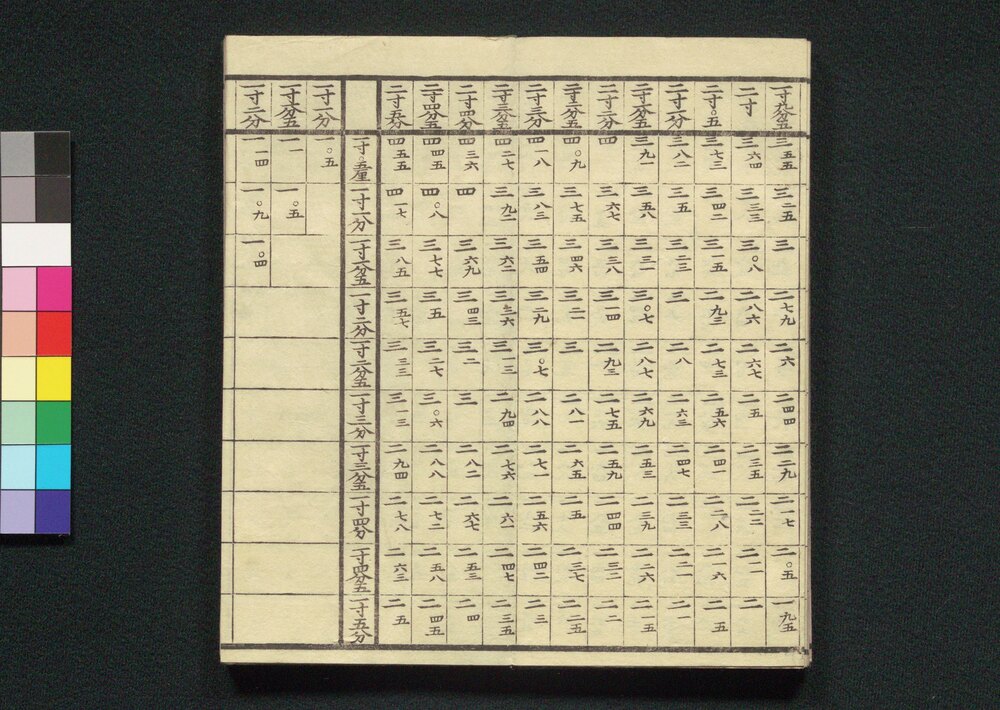 一寸九分五 三五五 三二五 三 二七九 二六 二四四 二二九 二一七 二〇五 一九五
二寸 三六四 三三三 三〇八 二八六 二六七 二五 二三五 二二二 二一一 二
二寸〇五 三七三 三四二 三一五 二九三 二七三 二五六 二四一 二二八 二一六 二五
二寸一分 三八二 三五 三二三 三 二八 二六三 二四七 二三三 二二一 二一
二寸一分五 三九一 三五八 三三一 三〇七 二八七 二六九 二五三 二三九 二二六 二一五
二寸二分 四 三六七 三三八 三一四 二九三 二七五 二五九 二四四 二三二 二二
二寸二分五 四〇九 三七五 三四六 三二一 三 二八一 二六五 二五 二三七 二二五
二寸三分 四一八 三八三 三五四 三二九 三〇七 二八八 二七一 二五六 二四二 二三
二寸三分五 四二七 三九二 三六二 三三六 三一三 二九四 二七六 二六一 二四七 二三五
二寸四分 四三六 四 三六九 三四三 三二 三 二八二 二六七 二五三 二四
二寸四分五 四四五 四〇八 三七七 三五 三二七 三〇六 二八八 二七二 二五八 二四五
二寸五分 四五五 四一七 三八五 三五七 三三三 三一三 二九四 二七八 二六三 二五
寸〇五厘 一寸一分 一寸一分五 一寸二分 一寸二分五 一寸三分 一寸三分五 一寸四分 一寸四分五 一寸五分
一寸一分 一〇五
一寸一分五 一一 一〇五
一寸二分 一一四 一〇九 一〇四